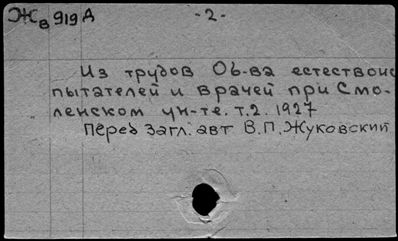 Жв 919 д - 2 -
Из трудов Об-ва естествоис
пытателей и врачей при Смо-
ленском ун-те. т.2. 1927
Перед загл: авт В.П. Жуковский